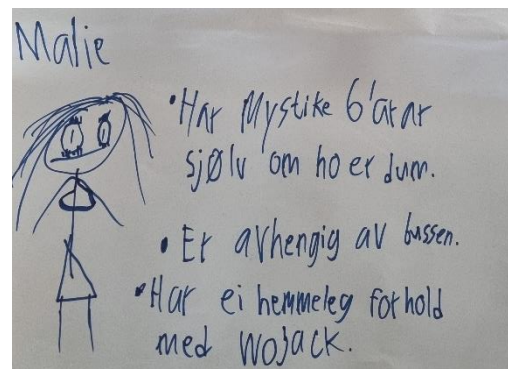 Malie
•Har Mystike 6'arar
sjølv om ho er dum.
• Er avhengig av bussen.
•Har ei hemmeleg forhold
med Wojack.